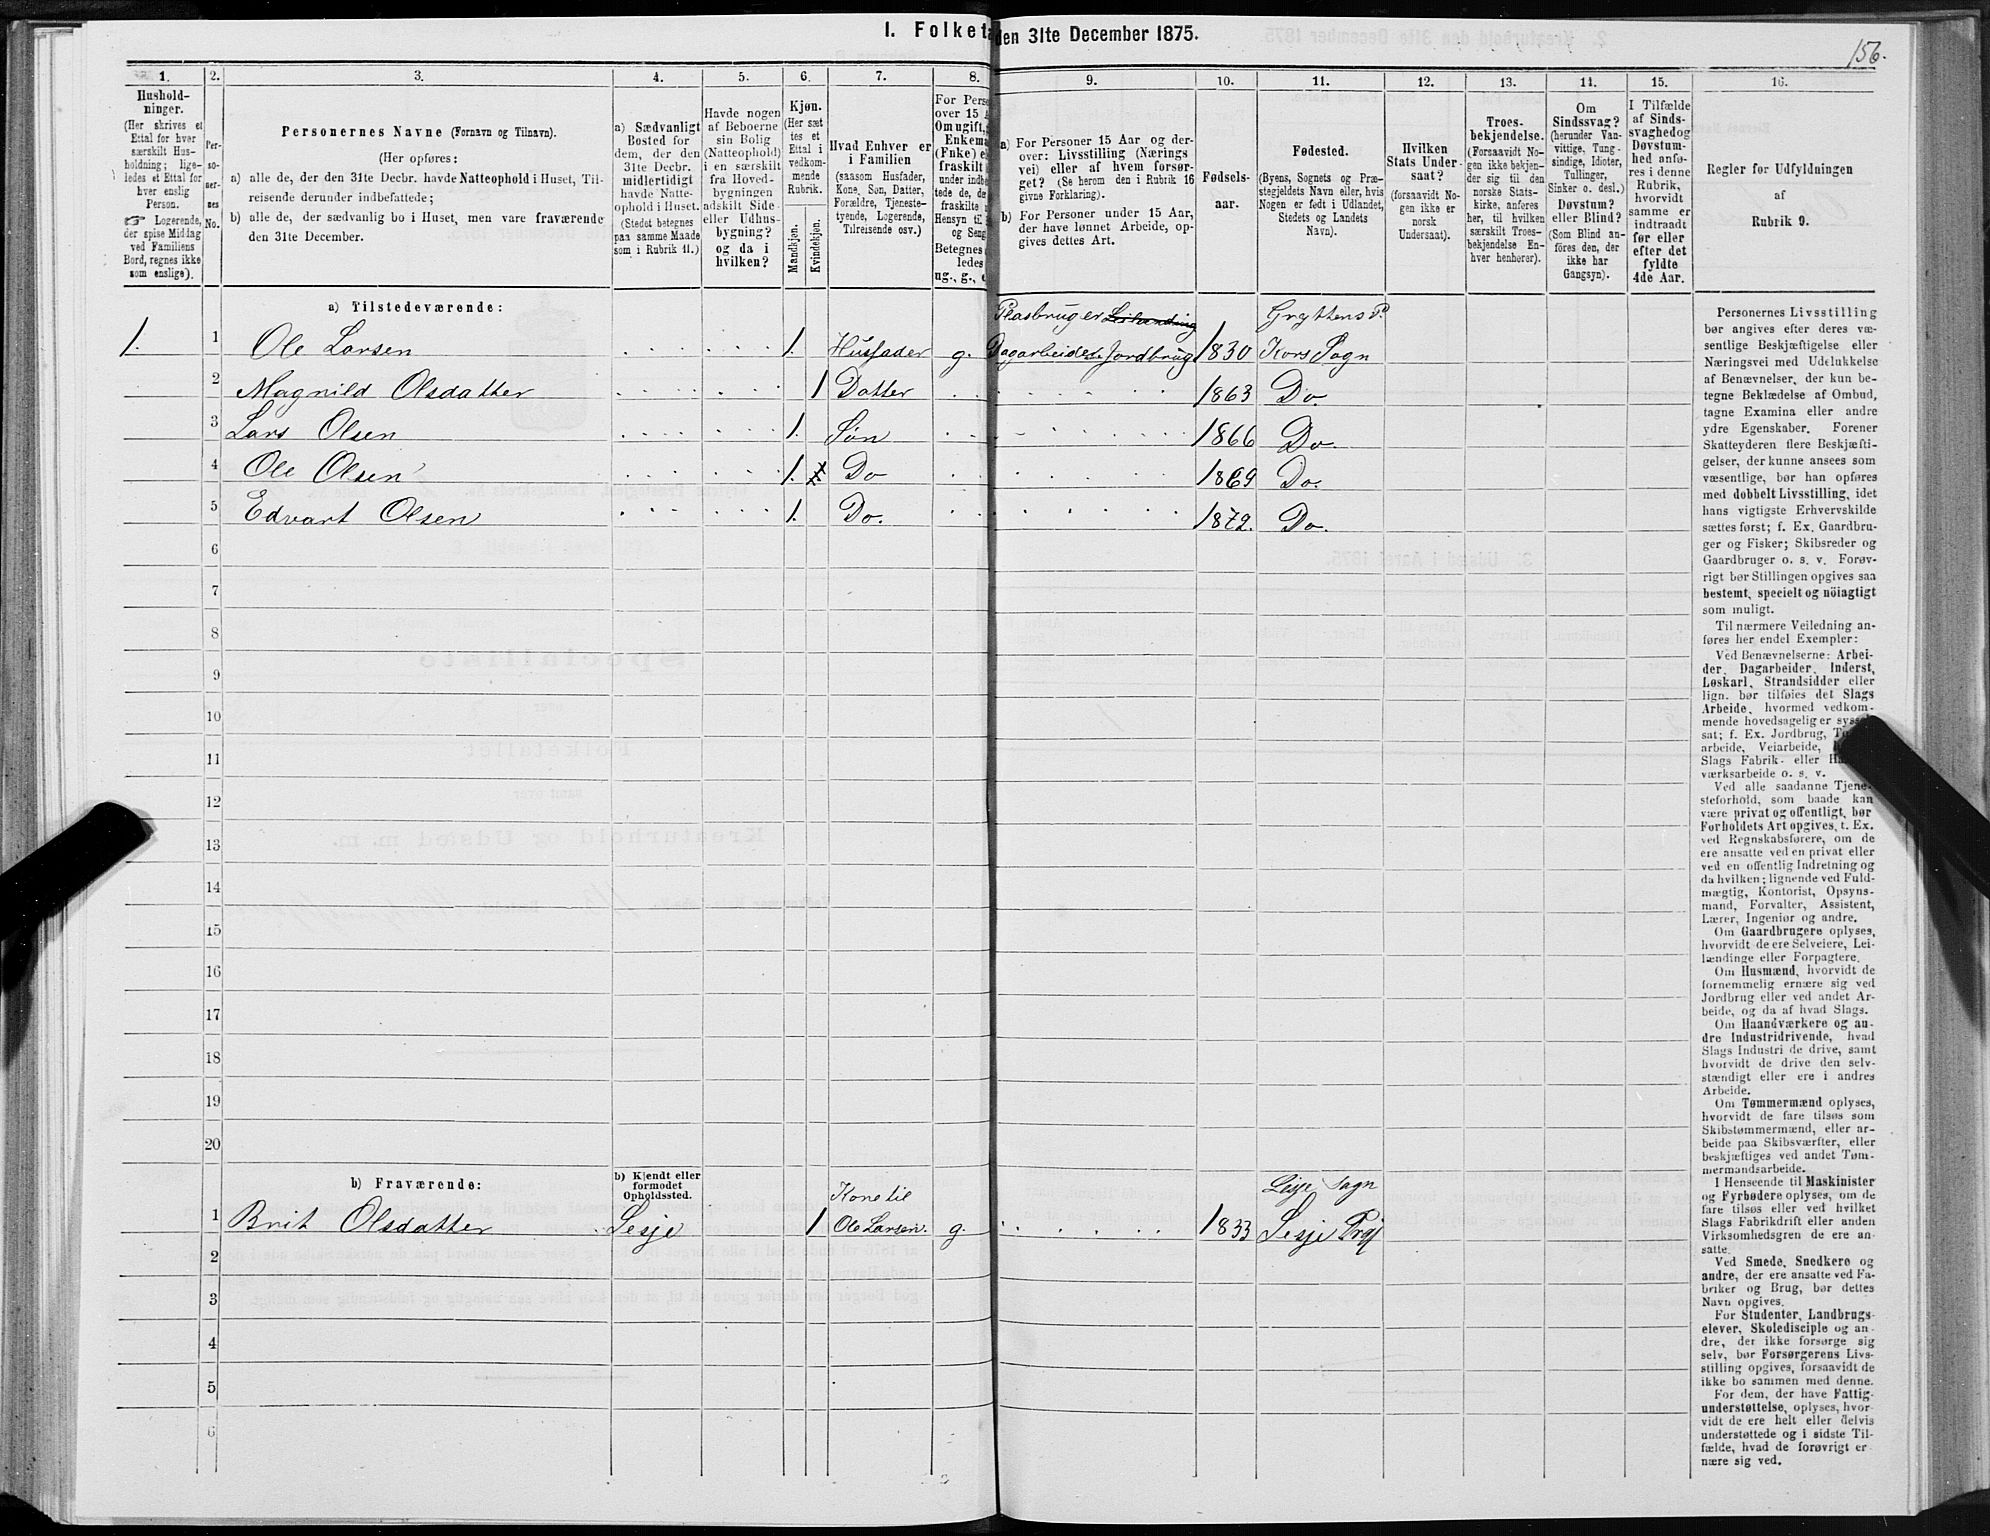 I. Folketa den 31te December 1875.
156.
1.
2.
3.
4.
5.
6.
7.
8.
9.
10.
11.
12.
13.
14.
15.
16.
Hushold-
ninger.
(Her skrives et
Ettal for hver
særskilt Hus-
holdning; lige-
ledes et Ettal for
hver enslig
Person.
☞ Logerende,
der spise Middag
ved Familiens
Bord, regnes ikke
som enslige).
Per-
so-
ner-
nes
No.
Personernes Navne (Fornavn og Tilnavn).
(Her opføres:
a) alle de, der den 31te Decbr. havde Natteophold i Huset, Til-
reisende derunder indbefattede;
b) alle de, der sædvanlig bo i Huset, men vare fraværende
den 31te December.
a) Sædvanligt
Bosted for
dem, der den
31te Decbr.
midlertidigt
havde Natte-
ophold i Huset.
(Stedet betegnes
paa samme Maade
som i Rubrik 11.)
Havde nogen
af Beboerne
sin Bolig
(Natteophold)
i en særskilt
fra Hoved-
bygningen
adskilt Side-
eller Udhus-
bygning?
og da i
hvilken?
Kjøn.
(Her sæt
tes et
Ettal i
vedkom-
mende
Rubrik.
Mandkjøn.
Kvindekjøn.
Hvad Enhver er
i Familien
(saasom Husfader,
Kone, Søn, Datter,
Forældre, Tjeneste-
tyende, Logerende,
Tilreisende osv.)
For Perso
over 15 A
Om ugift,
Enkema
(Enke) e
fraskilt
under indbe
tede de, de
fraskilte
Hensyn til
og Seng
Betegnes
ledes
ug., g., e
a) For Personer 15 Aar og der-
over: Livsstilling (Nærings
vei) eller af hvem forsør-
get? (Se herom den i Rubrik 16
givne Forklaring).
b) For Personer under 15 Aar,
der have lønnet Arbeide, op-
gives dettes Art.
Fødsels-
aar.
Fødested.
(Byens, Sognets og Præ-
stegjeldets Navn eller, hvis
Nogen er født i Udlandet,
Stedets og Landets
Navn).
Hvilken
Stats Under-
saat?
(forsaavidt No-
gen ikke er
norsk
Undersaat).
Troes-
bekjendelse.
(Forsaavidt No-
gen ikke bekjen-
der sig til den
norske Stats-
kirke, anføres
her, til hvilken
særskilt Troes-
bekjendelse En-
hver henhører).
Om
Sindssvag?
(herunder Van-
vittige, Tung-
sindige, Idioter,
Tullinger,
Sinker o. desl.)
Døvstum?
eller Blind?
(Som Blind an-
føres den, der
ikke har
Gangsyn).
I Tilfælde
af Sinds-
svaghedog
Døvstum-
hed anfø-
res i denne
Rubrik,
hvorvidt
samme er
indtraadt
før eller
efter det
fyldte
4de Aar.
Regler for Udfyldningen
af
Rubrik 9.
a) Tilstedeværende:
Plasbruger Leilænding Gryttens P.
1. 1 Ole Larsen 1. Husfader g. Dagarbeider Jordbrug 1830 Kors Sogn
2 Magnild Olsdatter 1 Datter 1863 Do.
3 Lars Olsen 1. Søn 1866 Do.
4 Ole Olsen 1. Do 1869 Do.
5 Edvart Olsen 1. Do. 1872. Do.
6
7
8
9
10
11
12
13
14
15
16
17
18
19
20
b) Fraværende:
b) Kjendt eller
formodet
Opholdssted.
Kone til Lesje Sogn
1 Brit Olsdatter Lesje 1 Ole Larsen. g. 1833 Lesje Prgj
2
3
4
5
6
Personernes Livsstilling
bør angives efter deres væ-
sentlige Beskjæftigelse eller
Næringsvei med Udelukkelse
af Benævnelser, der kun be-
tegne Beklædelse af Ombud,
tagne Examina eller andre
ydre Egenskaber. Forener
Skatteyderen flere Beskjæfti-
gelser, der kunne ansees som
væsentlige, bør han opføres
med dobbelt Livsstilling, idet
hans vigtigste Erhvervskilde
sættes først; f. Ex. Gaardbru-
ger og Fisker; Skibsreder og
Gaardbruger o. s. v. Forøv-
rigt bør Stillingen opgives saa
bestemt, specielt og nöiagtigt
som muligt.
Til nærmere Veiledning an-
føres her endel Exempler:
Ved Benævnelserne: Arbei-
der, Dagarbeider, Inderst,
Løskarl, Strandsidder eller
lign. bør tilføies det Slags
Arbeide, hvormed vedkom-
mende hovedsagelig er syssel
sat; f. Ex. Jordbrug,
arbeide, Veiarbeide,
Slags Fabrik- eller Ha
værksarbeide o. s. v.
Ved alle saadanne Tjene-
steforhold, som baade kan
være privat og offentligt, bør
Forholdets Art opgives, t. Ex.
ved Regnskabsførere, om de
ere ansatte ved en privat eller
ved en offentlig Indretning og
da hvilken; lignende ved Fuld-
mægtig, Kontorist, Opsyns-
mand, Forvalter, Assistent,
Lærer, Ingeniør og andre.
Om Gaardbrugere oplyses,
hvorvidt de ere Selveiere, Lei-
lændinge eller Forpagtere.
Om Husmænd, hvorvidt de
fornemmelig ernære sig ved
Jordbrug eller ved andet Ar-
beide, og da af hvad Slags.
Om Haandværkere og an-
dre Industridrivende, hvad
Slags Industri de drive, samt
hvorvidt de drive den selv-
stændigt eller ere i andres
Arbeide.
Om Tømmermænd oplyses,
hvorvidt de fare tilsøs som
Skibstømmermænd, eller ar-
beide paa Skibsværfter, eller
beskjæftiges ved andet Tøm-
mermandsarbeide.
I Henseende til Maskinister
og Fyrbødere oplyses, om de
fare tilsøs eller ved hvilket
Slags Fabrikdrift eller anden
Virksomhedsgren de ere an-
satte.
Ved Smede, Snedkere og
andre, der ere ansatte ved Fa-
briker og Brug, bør dettes
Navn opgives.
For Studenter, Landbrugs-
elever, Skoledisciple og an-
dre, der ikke forsørge sig
selv, bør Forsørgerens Livs-
stilling opgives, forsaavidt de
ikke bo sammen med denne.
For dem, der have Fattig-
understøttelse, oplyses, hvor-
vidt de ere helt eller delvis
understøttede og i sidste Til-
fælde, hvad de forøvrigt er-
nære sig ved.